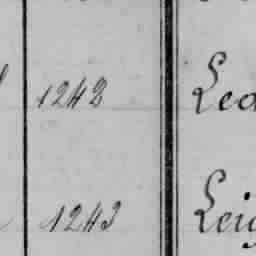 1242 Led
1243 Leig